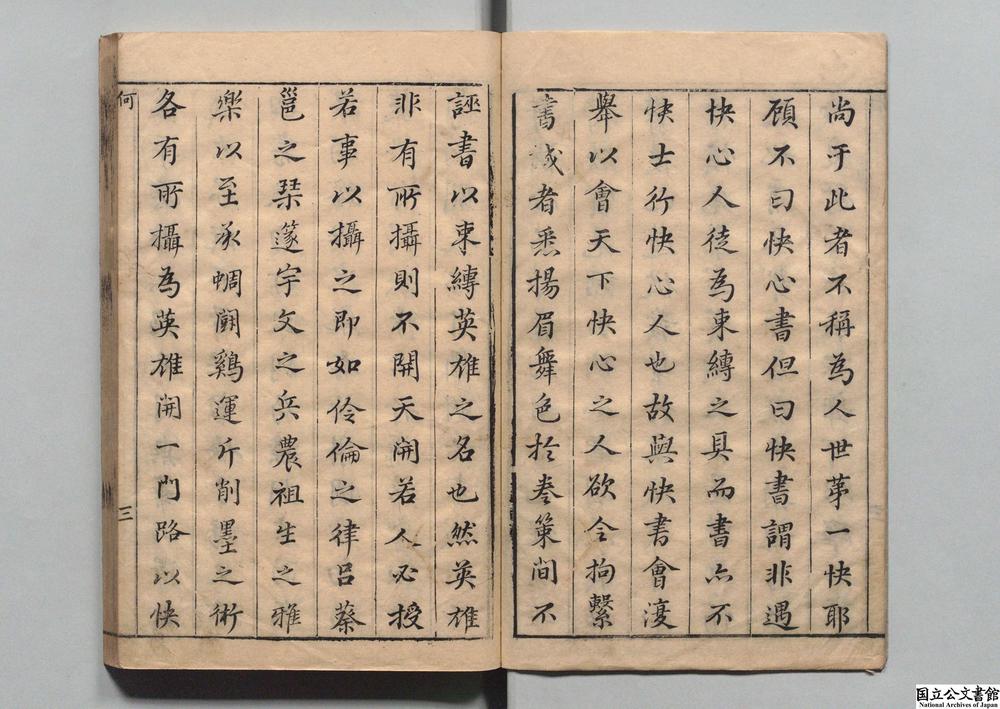 尚于此者不稱為人世苐一快耶
顧不曰快心書但曰快書謂非遇
快心人徒為束縛之具而書亦不
快士行快心人也故與快書會湲
舉以會天下快心之人欲令拘繫
書城者悉揚眉舞色扵卷箧間不
誣書以束縛英雄之名也然英雄
非有所攝則不開天開若人必授
若事以攝之即如伶倫之律呂蔡
邕之琹篴宇文之兵農祖生之雅
樂以至承蜩鬬鷄運斤削墨之術
各有所攝為英雄開一門路以快
何
三
国立公文書館
National Archives of Japan